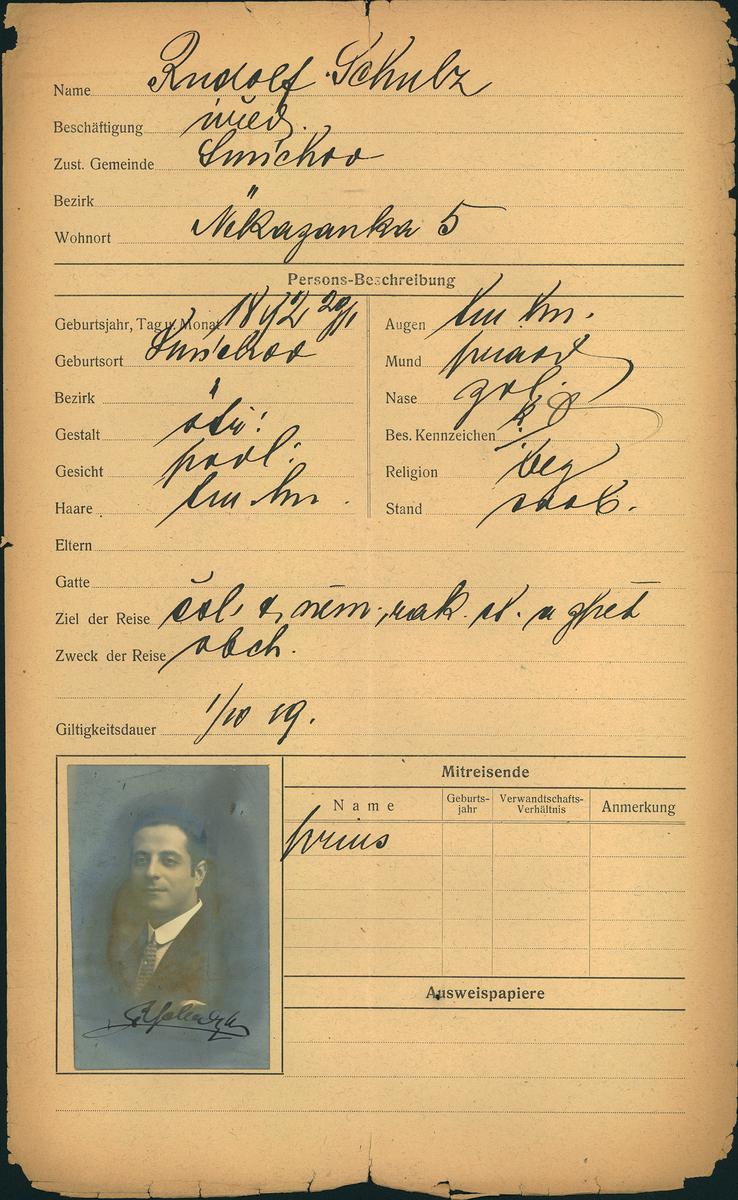 Name Rudolf Schulz
Beschäftigung úřed.
Zust. Gemeinde Smíchov
Bezirk "
Wohnort Nekazanka 5
Persons-Beschreibung
Geburtsjahr, Tag u. Monat 1892, 29/1
Geburtsort Smíchov
Bezirk "
Gestalt stř.
Gesicht podl.
Haare tm. hn.
Augen tm hn.
Mund
Nase
Bes. Kennzeichen
Religion
Stand svob.
Eltern
Gatte
Ziel der Reise čsl. něm., rak. st. a zpět
Zweck der Reise obch.
Giltigkeitsdauer 1/10 19.
Mitreisende
Name
Geburts-
jahr
Verwandtschafts-
Verhältnis
Anmerkung
Ausweispapiere